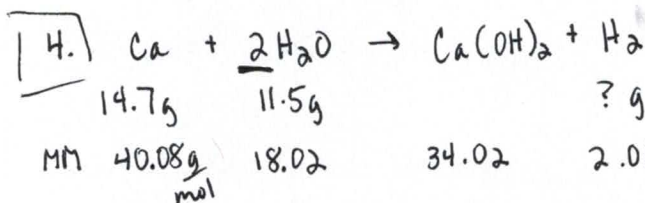 4. Ca + 2H₂O → Ca(OH)₂ + H₂
14.7g 11.5g ? g
MM 40.08 g/mol 18.02 34.02 2.0